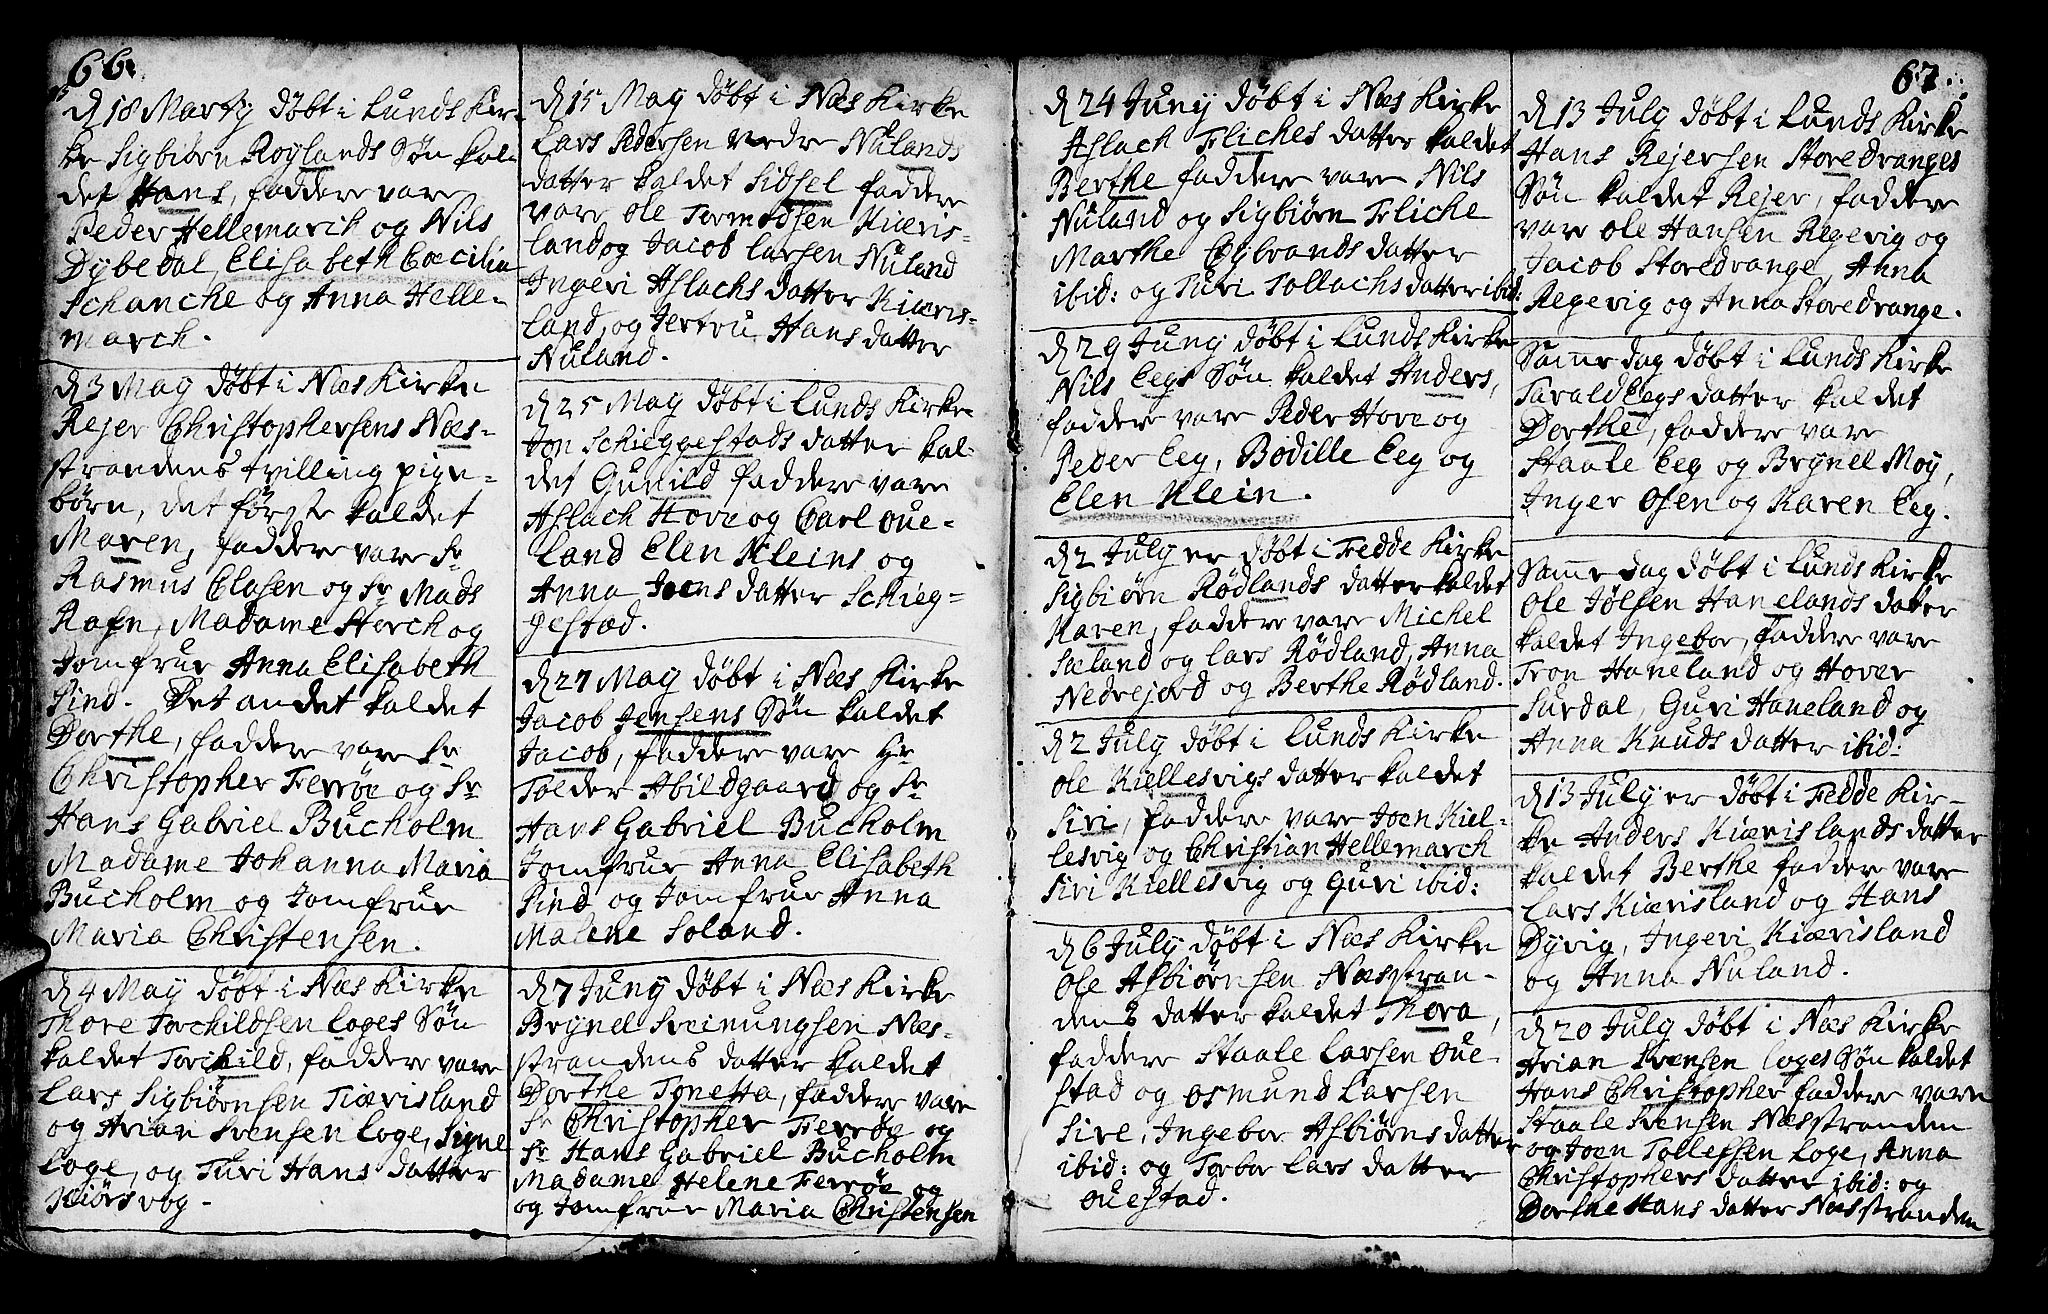 66.
d 18 Marty døbt i Lunds Kir-
ke Sigbiørn Roylands Søn kal-
det Hans, faddere vare
Peder Hellemarck og Nils
Dybedal, Elisabeth Cæcilia
Schanche og Anna Helle-
march.
d 3 May døbt i Næs Kirke
Rejer Christophersens Næs-
strandens tvilling pige-
børn, det første kaldet
Maren, faddere vare Sr
Rasmus Clasen og Sr Mads
Rafn, Madame Storch og
Jomfrue Anna Elisabeth
Pind. Det andet kaldet
Dorthe, faddere vare Sr
Christopher Ferrøe og Sr
Hans Gabriel Bucholm
Madame Johanna Maria
Bucholm og Jomfrue
Maria Christensen.
d 4 May døbt i Næs Kirke
Thore Torchildsen Loges Søn
kaldet Torchild, faddere vare
Lars Sigbiørnsen Tiærisland
og Arian Svensen Loge, Signe
Loge, og Turi Hans datter
Kiørsvog.
d 15 May døbt i Næs Kirke
Lars Pedersen Nedre Nulands
datter kaldet Sidsel faddere
vare Ole Tormodsen Kiæris-
land og Jacob Larsen Nuland
Ingeri Aslachs datter Kiæris-
land, og Jertru Hans datter
Nuland.
d 25 May døbt i Lunds Kirke
Jon Schieggestads datter kal-
det Gunild faddere vare
Aslach Hove og Carl Oue-
land Elen Kleins og
Anna Joens datter Schieg-
gestad.
d 27 May døbt i Næs Kirke
Jacob Jensens Søn kaldet
Jacob, faddere vare Hr
Tolder Abildgaard og Sr
Hans Gabriel Bucholm
Jomfrue Anna Elisabeth
Pind og Jomfrue Anna
Malene Soland.
d 7 Juny døbt i Næs Kirke
Brynel Sveinungsen Næs-
strandens datter kaldet
Dorthe Tonetta, faddere vare
Sr Christopher Ferrøe og
Sr Hans Gabriel Bucholm
Madame Helene Ferrøe og
og Jomfrue Maria Christensen
67.
d 24 Juny døbt i Næs Kirke
Aslach Fliches datter kaldet
Berthe faddere vare Nils
Nuland og Sigbiørn Fliche
Marthe Eybrands datter
ibid: og Turi Tollachs datter ibid:
d 29 Juny døbt i Lunds Kirke
Nils Eegs Søn kaldet Anders,
faddere vare Peder Hove og
Peder Eeg, Bodille Eeg og
Elen Klein.
d 2 July er døbt i Fedde Kirke
Sigbiørn Rødlands datter kaldet
Karen, faddere vare Michel
Sæland og Lars Rødland, Anna
Nedrejord og Berthe Rødland.
d 2 July døbt i Lunds Kirke
Ole Kiellesvigs datter kaldet
Siri, faddere vare Joen Kiel-
lesvig og Christian Hellemarch
Siri Kiellesvig og Guri ibid:
d 6 July døbt i Næs Kirke
Ole Asbiørnsen Næsstran-
dens datter kaldet Thora,
faddere Staale Larsen Oue-
stad og Osmund Larsen
Sire, Ingebor Asbiørns datter
ibid: og Torbor Lars datter
Ouestad.
d 13 July døbt i Lunds Kirke
Hans Rejersen Storedranges
Søn kaldet Rejer, faddere
vare Ole Hansen Regevig og
Jacob Storedrange, Anna
Regevig og Anna Storedrange.
Same dag døbt i Lunds Kirke
Tarald Eegs datter kaldet
Dorthe, faddere vare
Staale Eeg og Brynel Moy,
Inger Osen og Karen Eeg.
Same dag døbt i Lunds Kirke
Ole Jølsen Hanelands datter
kaldet Ingebor, faddere vare
Tron Haneland og Hover
Surdal, Guri Haneland og
Anna Knuds datter ibid:
d 13 July er døbt i Fedde Kir-
ke Anders Kiærislands datter
kaldet Berthe faddere vare
Lars Kiærisland og Hans
Dyvig, Ingeri Kiærisland
og Anna Nuland.
d 20 July døbt i Næs Kirke
Arian Svensen Loges Søn kaldet
Hans Christopher faddere vare
Staale Svensen Næsstranden
og Joen Tollefsen Loge, Anna
Christophers datter ibid: og
Dorthe Hans datter Næsstranden